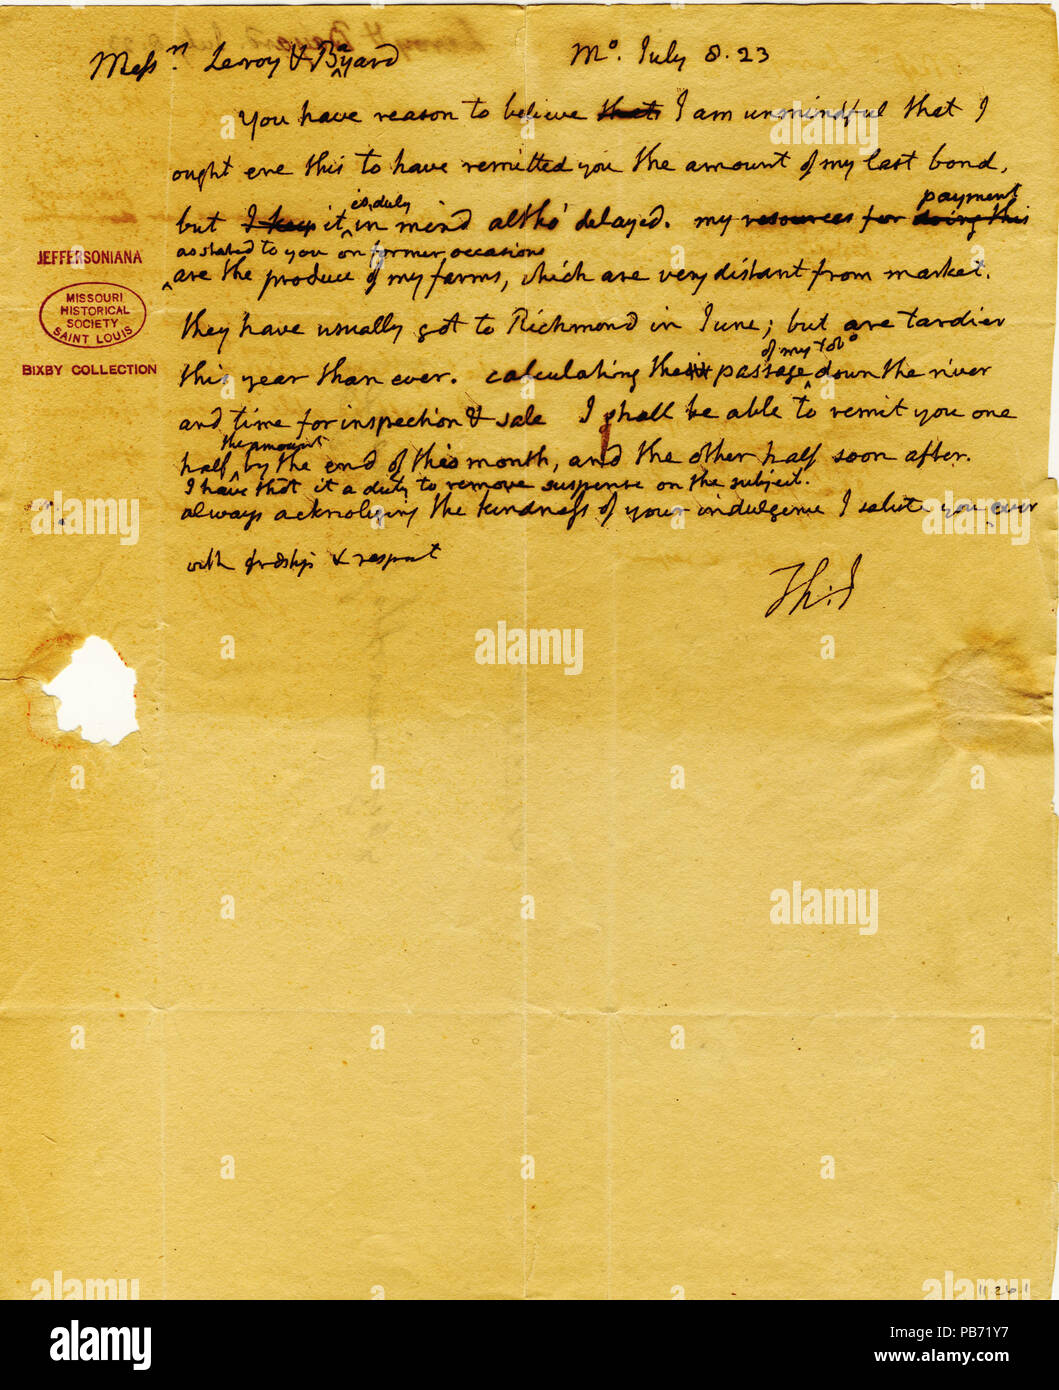 Mess.rs Leroy & Bayard
Mo. July 8. 23
You have reason to believe that I am unmindful that I
ought ere this to have remitted you the amount of my last bond,
is duly
payment
but I keep it in mind altho' delayed. my resources for doing this
as stated to you on former occasions
are the produce of my farms, which are very distant from market.
they have usually got to Richmond in June; but are tardier
of my tobo
this year than ever. calculating the passage down the river
and time for inspection & sale I shall be able to remit you one
the amount
half by the end of this month, and the other half soon after.
I have that it a duty to remove suspense on the subject.
always acknolging the kindness of your indulgence I salute you ever
with frdship & respect
Th:J
JEFFERSONIANA
MISSOURI
HISTORICAL
SOCIETY
SAINT LOUIS
BIXBY COLLECTION
11 26 1
alamy
alamy
Image ID: PB71Y7
www.alamy.com